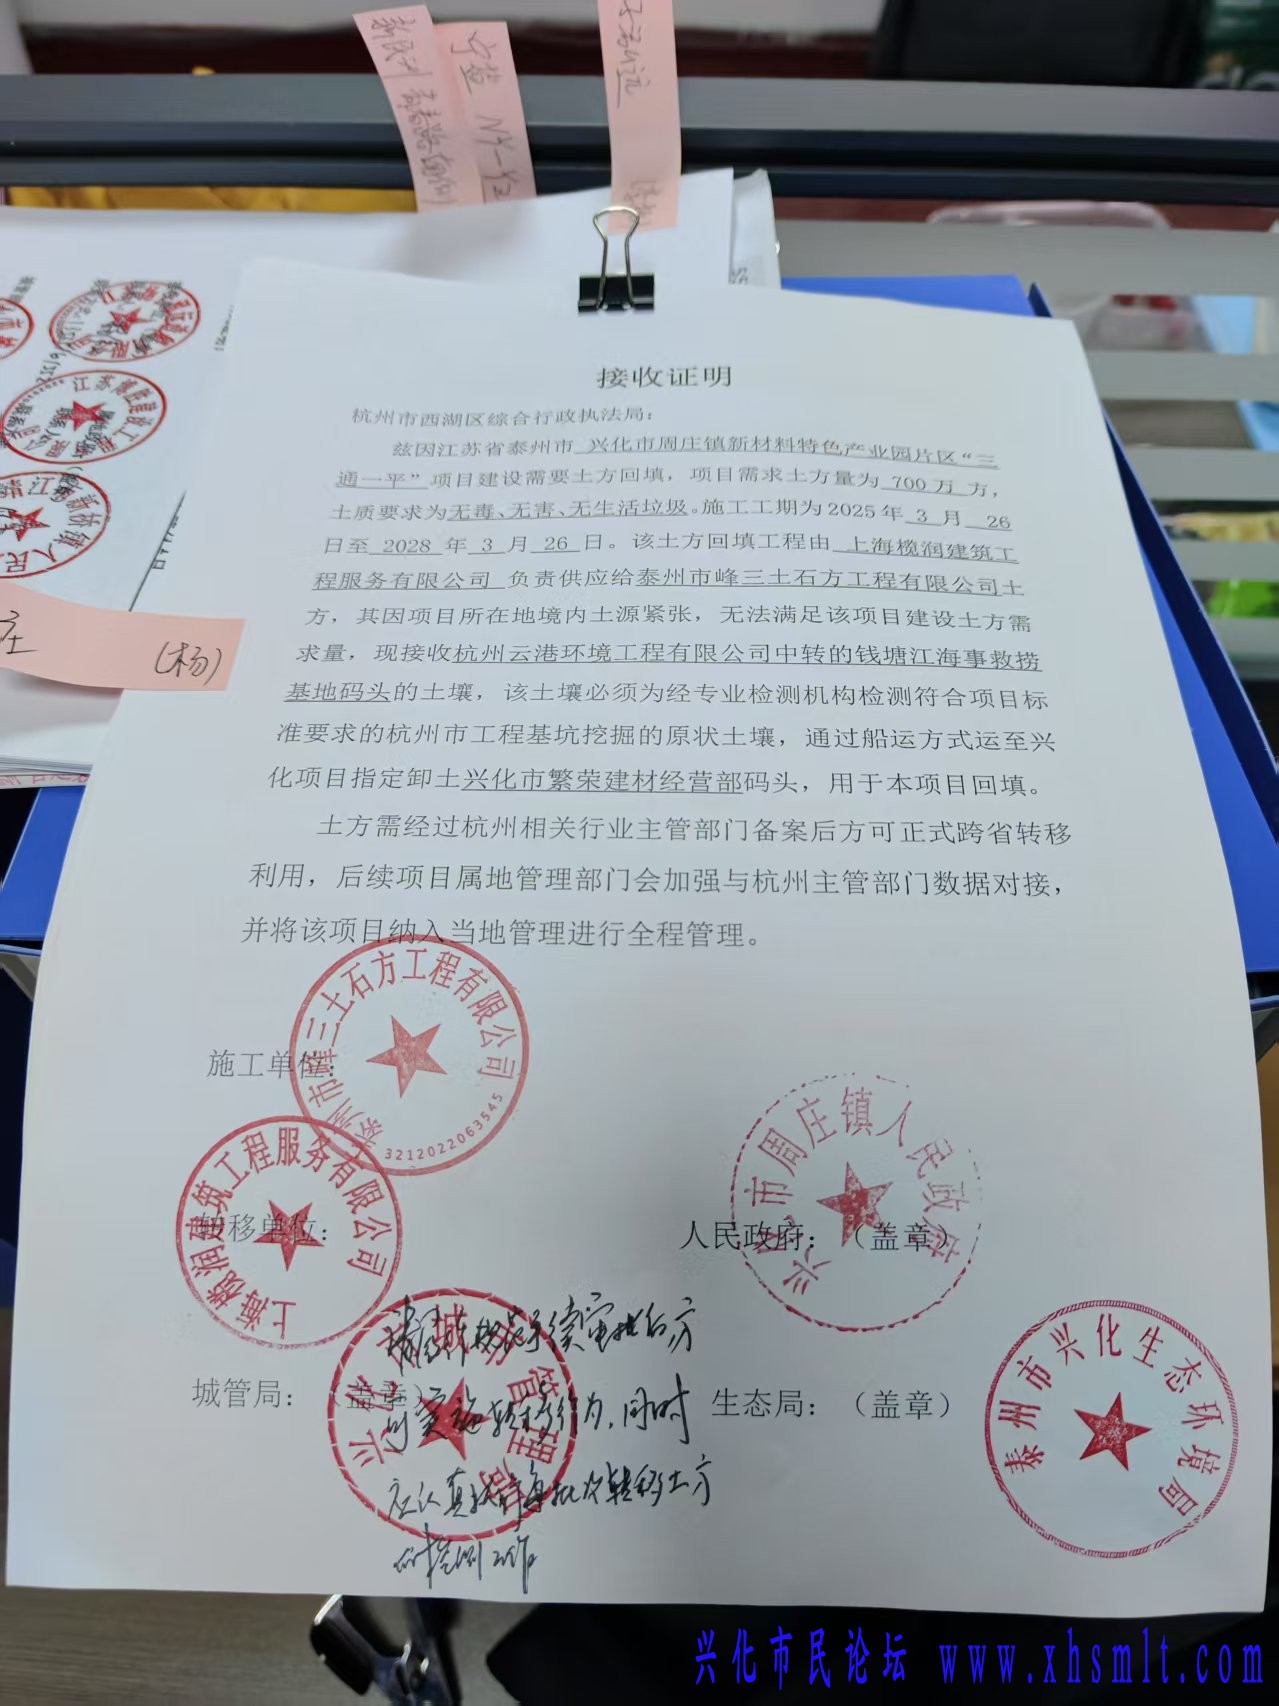 NY-
(杨)
接收证明
杭州市西湖区综合行政执法局:
兹因江苏省泰州市 兴化市周庄镇新材料特色产业园片区“三
通一平”项目建设需要土方回填，项目需求土方量为 700万 方，
土质要求为无毒、无害、无生活垃圾。施工工期为2025年 3 月 26
日至 2028 年 3 月 26 日。该土方回填工程由 上海榄润建筑工
程服务有限公司 负责供应给泰州市峰三土石方工程有限公司土
方，其因项目所在地境内土源紧张，无法满足该项目建设土方需
求量，现接收杭州云港环境工程有限公司中转的钱塘江海事救捞
基地码头的土壤，该土壤必须为经专业检测机构检测符合项目标
准要求的杭州市工程基坑挖掘的原状土壤，通过船运方式运至兴
化项目指定卸土兴化市繁荣建材经营部码头，用于本项目回填。
土方需经过杭州相关行业主管部门备案后方可正式跨省转移
利用，后续项目属地管理部门会加强与杭州主管部门数据对接，
并将该项目纳入当地管理进行全程管理。
施工单位:
泰州市峰三土石方工程有限公司
3212022063545
转移单位:
上海榄润建筑工程服务有限公司
人民政府: （盖章）
兴化市周庄镇人民政府
城管局: （盖章）
兴化市城市管理局
生态局: （盖章）
泰州市兴化生态环境局
手续审批后方
可实施转移行为,同时
应认真执行每批次转移土方
的检测工作
兴化市民论坛 www.xhsmlt.com